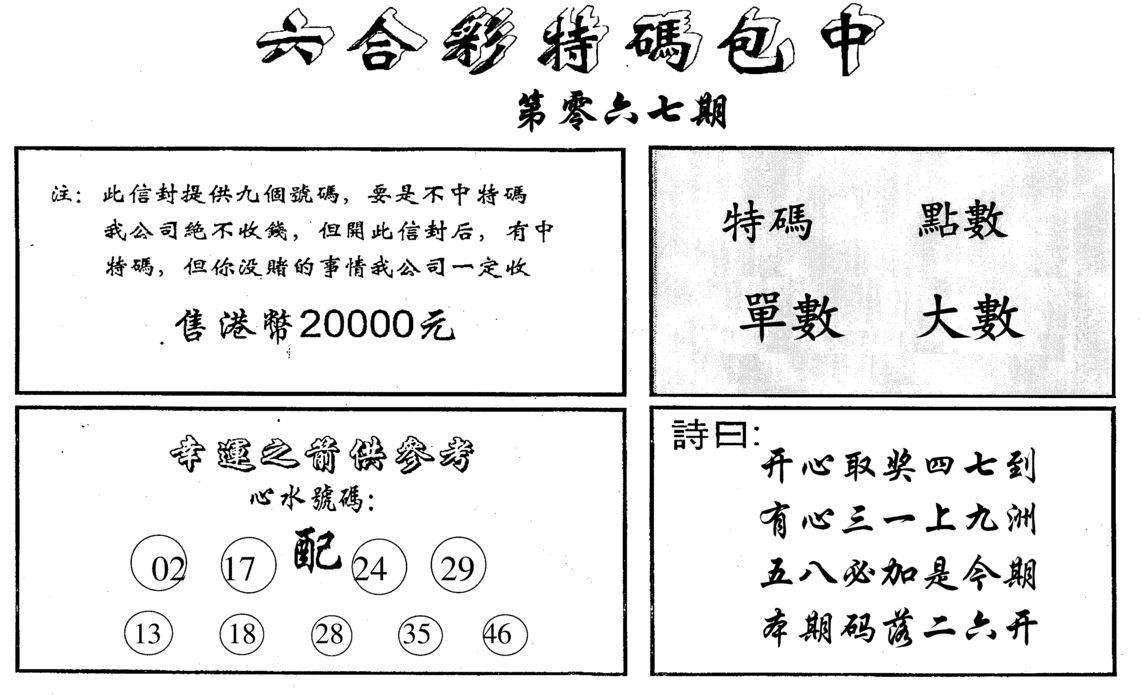 六合彩特碼包中
第零六七期
注：此信封提供九個號碼，要是不中特碼
我公司絶不收錢，但開此信封后，有中
特碼，但你没賭的事情我公司一定收
售港幣20000元
特碼 點數
單數 大數
幸運之箭供參考
心水號碼：
02 17 配 24 29
13 18 28 35 46
詩曰：
开心取奖四七到
有心三一上九洲
五八必加是今期
本期码落二六开